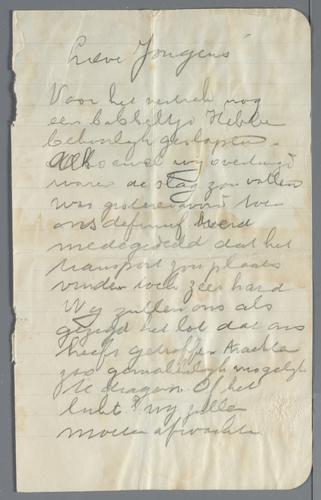 Lieve Jongens
Voor het vertrek nog
een babbeltje Hebben
behoorlijk geslapen.
Alhoewel wy overtuigd
waren de slag zou vallen
was gisteravond toen
ons definief werd
medegedeeld dat het
transport zou plaats
vinden toch zeer hard
Wy zullen ons als
gezegd het lot dat ons
heeft getroffen trachten
zoo gemakkelijk mogelijk
te dragen. Of het
lukt? wy zullen
moeten afwachten